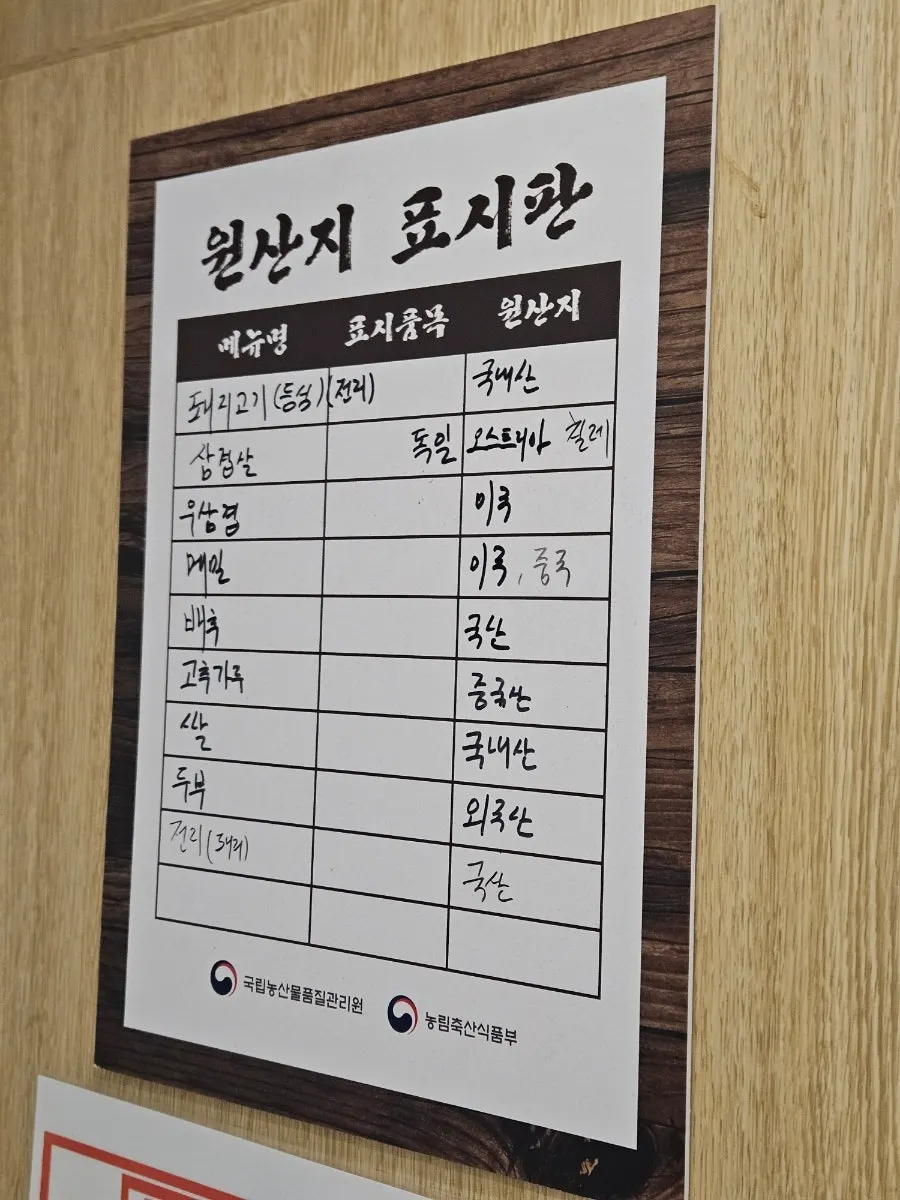 원산지 표시판
메뉴명 표시품목 원산지
돼지고기(등심)(전지) 국내산
삼겹살 독일 오스트리아 칠레
우삼겹 미국
메밀 미국, 중국
배추 국산
고추가루 중국산
쌀 국내산
두부 외국산
전지 국산
국립농산물품질관리원
농림축산식품부